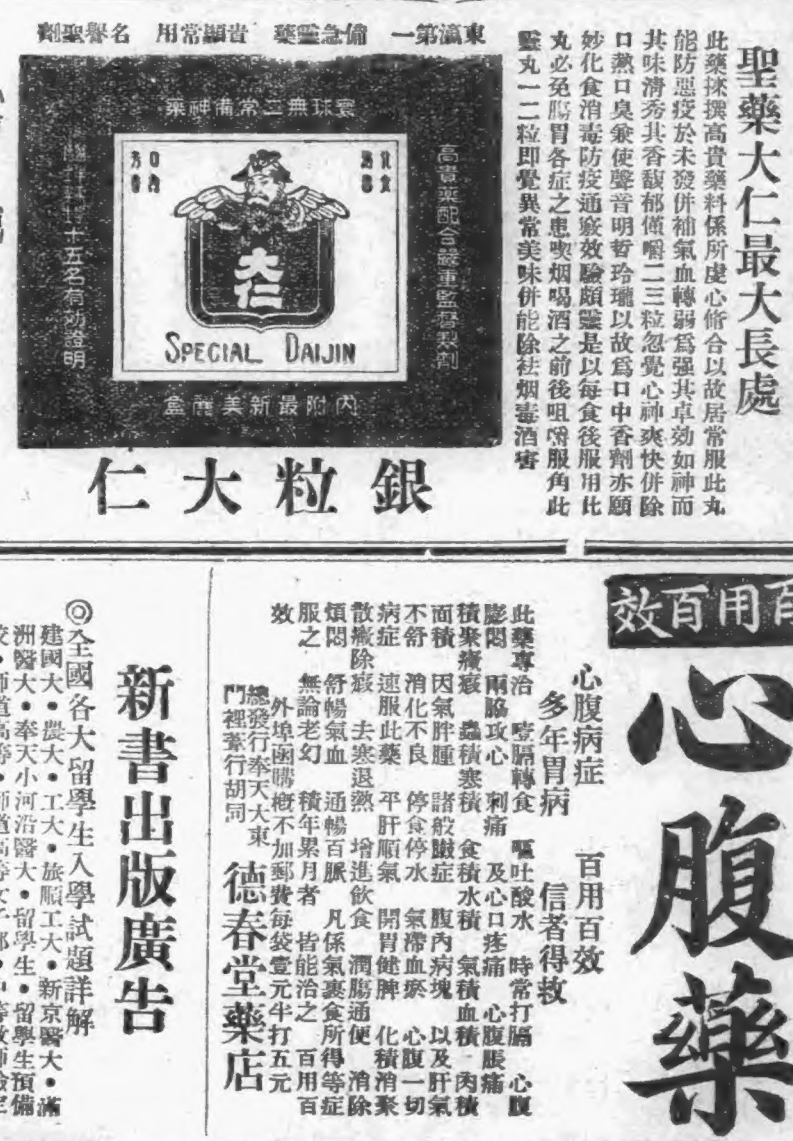 聖藥大仁最大長處
此藥採撰高貴藥料係所虔心脩合以故居常服此丸
能防惡疫於未發併補氣血轉弱爲强其卓効如神而
其味淸秀其香馥郁僅嚼二三粒忽覺心神爽快併除
口熱口臭兼使聲音明晳玲瓏以故爲口中香劑亦願
妙化食消毒防疫通竅效驗頗靈是以每食後服用此
丸必免膓胃各症之患喫烟喝酒之前後咀嚼服角此
靈丸一二粒即覺異常美味併能除袪烟毒酒害
東瀛第一 備急靈藥 貴顯常用 名譽聖劑
寰球無二常備神藥
高貴藥配合嚴重監督製劑
十五名有効證明
化食
口內
芳香
大仁
SPECIAL DAIJIN
內附最新美麗盒
銀粒大仁
百用百效
心腹藥
心腹病症 百用百效
多年胃病 信者得救
此藥專治 噎膈轉食 嘔吐酸水 時常打膈 心腹
膨悶 兩脇攻心 刺痛 及心口疼痛 心腹脹痛
積聚癥瘕 蟲積寒積 食積水積 氣積血積 肉積
面積 因氣胖腫 諸般臌症 腹內病塊 以及肝氣
不舒 消化不良 停食停水 氣滯血瘀 心腹一切
病症 速服此藥 平肝順氣 開胃健脾 化積消聚
散癥除瘕 去寒退熱 增進飲食 潤膓通便 消除
煩悶 舒暢氣血 通暢百脈 凡係氣裹食所得等症
服之 無論老幻 積年累月者 皆能治之 百用百
效
外埠函購槪不加郵費每袋壹元半打五元
總發行奉天大東
門裡葦行胡同
德春堂藥店
新書出版廣告
◎全國各大留學生入學試題詳解
建國大●農大●工大●旅順工大●新京醫大●滿
洲醫大●奉天小河沿醫大●留學生●留學生預備